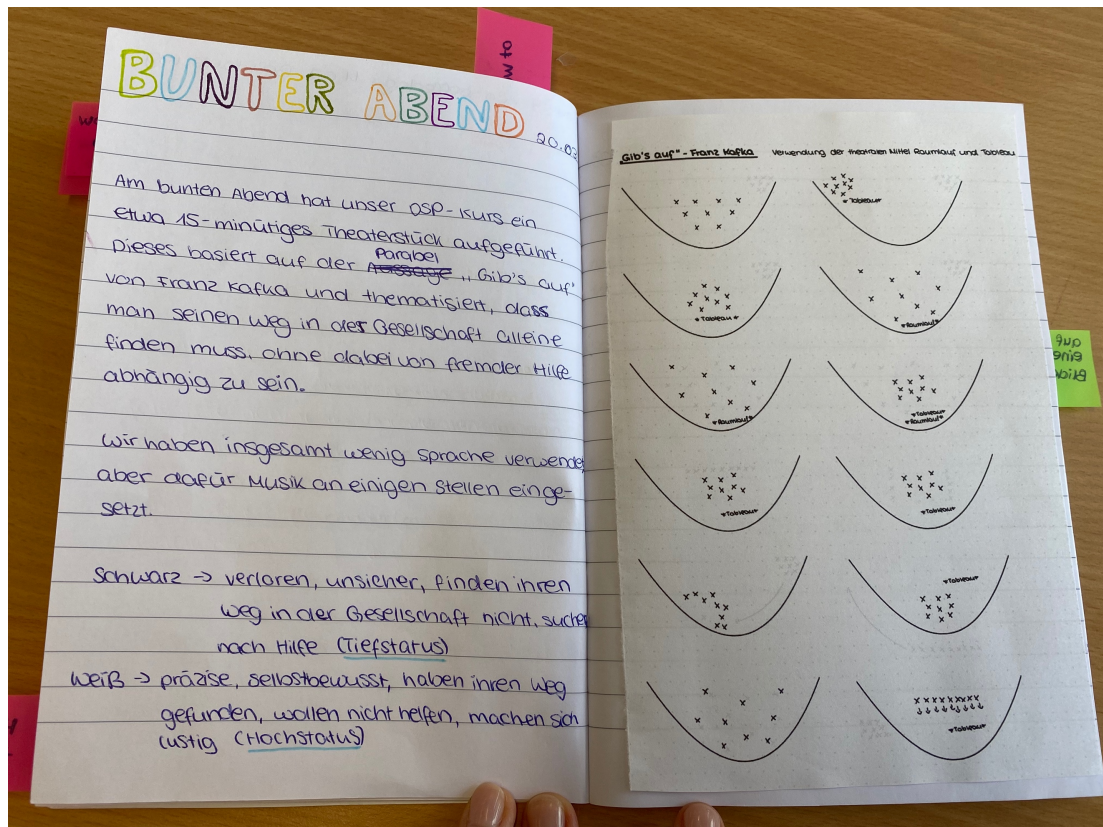 BUNTER ABEND
20.03
Am bunten Abend hat unser DSP-Kurs ein
etwa 15-minütiges Theaterstück aufgeführt.
Dieses basiert auf der Parabel „Gib's auf"
von Franz Kafka und thematisiert, dass
man seinen Weg in der Gesellschaft alleine
finden muss, ohne dabei von fremder Hilfe
abhängig zu sein.
Wir haben insgesamt wenig Sprache verwendet,
aber dafür Musik an einigen Stellen einge-
setzt.
Schwarz → verloren, unsicher, finden ihren
Weg in der Gesellschaft nicht, suchen
nach Hilfe (Tiefstatus)
Weiß → präzise, selbstbewusst, haben ihren Weg
gefunden, wollen nicht helfen, machen sich
lustig (Hochstatus)
„Gib's auf" - Franz Kafka Verwendung der theatralen Mittel Raumlauf und Tableau
*Tableau*
*Tableau*
*Raumlauf*
*Raumlauf*
*Tableau*
*Raumlauf*
*Tableau*
*Tableau*
*Tableau*
*Tableau*
w to
auf
eine
Blick